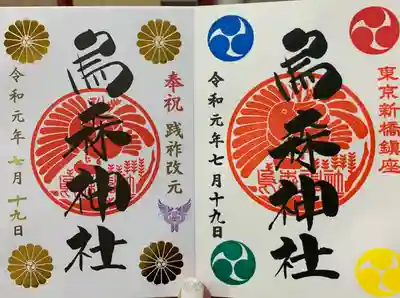 東京新橋鎮座
烏森神社
令和元年七月十九日
奉祝 践祚改元
烏森神社
令和元年七月十九日